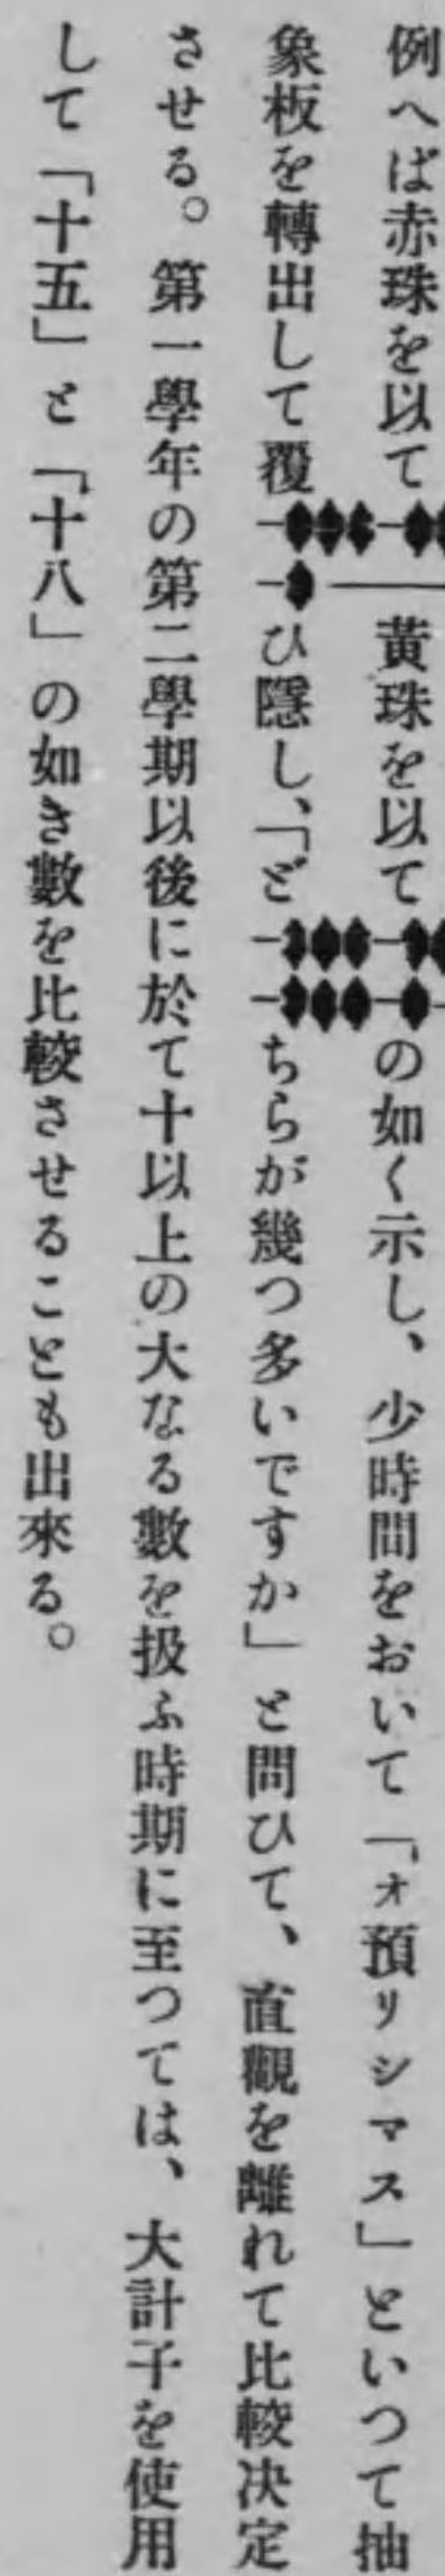 例へば赤珠を以て黄珠を以ての如く示し、少時間をおいて「オ預リシマス」といつて抽
象板を轉出して覆ひ隱し、「どちらが幾つ多いですか」と問ひて、直觀を離れて比較決定
させる。第一學年の第二學期以後に於て十以上の大なる數を扱ふ時期に至つては、大計子を使用
して「十五」と「十八」の如き數を比較させることも出來る。